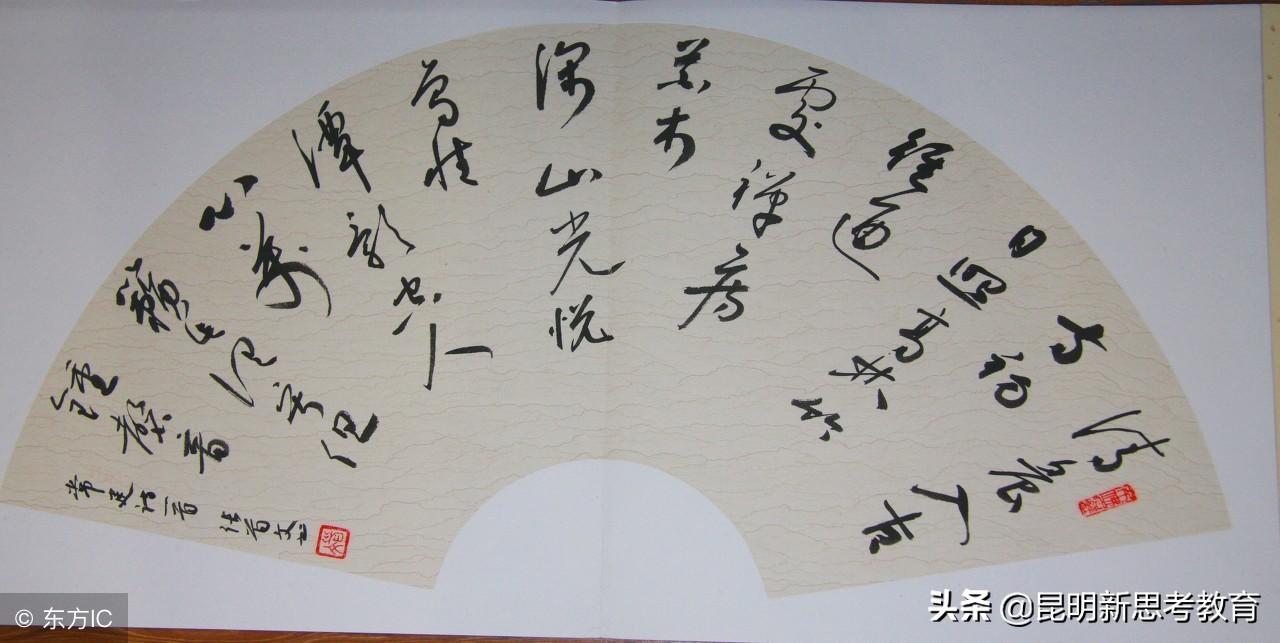 清晨入古
寺初
日照高林竹
径通
處禅房
花木
深山光悦
鸟性
潭影空人
心万
籁此俱寂但
鐘磬音
常建诗一首
© 东方IC
头条 @昆明新思考教育